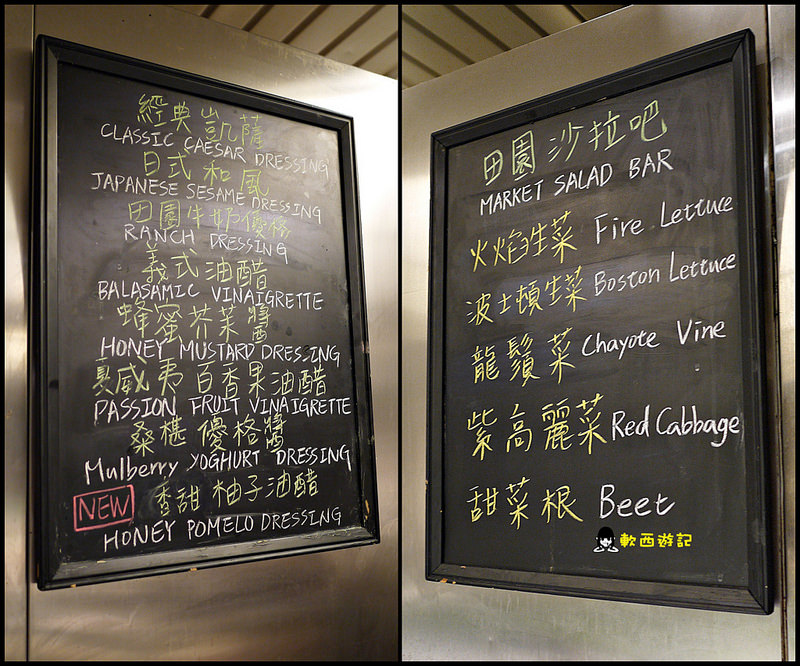 經典凱薩
CLASSIC CAESAR DRESSING
日式和風
JAPANESE SESAME DRESSING
田園牛奶優格
RANCH DRESSING
義式油醋
BALASAMIC VINAIGRETTE
蜂蜜芥茉醬
HONEY MUSTARD DRESSING
夏威夷百香果油醋
PASSION FRUIT VINAIGRETTE
桑椹優格醬
Mulberry YOGHURT DRESSING
NEW 香甜柚子油醋
HONEY POMELO DRESSING
田園沙拉吧
MARKET SALAD BAR
火焰生菜 Fire Lettuce
波士頓生菜 Boston Lettuce
龍鬚菜 Chayote Vine
紫高麗菜 Red Cabbage
甜菜根 Beet
軟西遊記